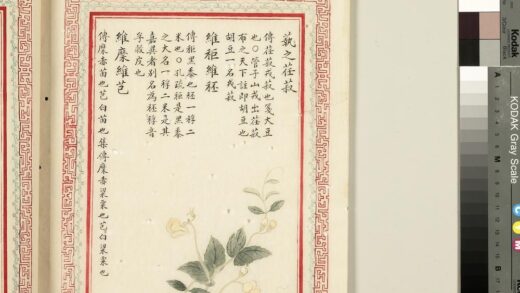 蓺之荏菽
傳荏菽戎菽也箋大豆
也○管子山戎出荏菽
布之天下註即胡豆也
胡豆一名戎菽
維秬維秠
傳秬黑黍也秠一稃二
米也○孔疏秬是黑黍
之大名一稃二米是其
嘉異者別名為秠稃音
孚穀皮也
維穈維芑
傳穈赤苗也芑白苗也集傳穈赤粱粟也芑白粱粟也
Kodak
KODAK Gray Scale
A
M
8
B
C
Y
M